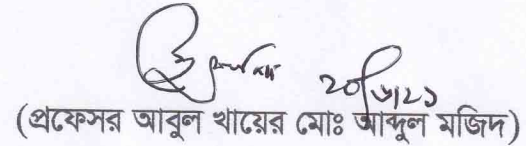 ২০/৬/২১
(প্রফেসর আবুল খায়ের মোঃ আব্দুল মজিদ)